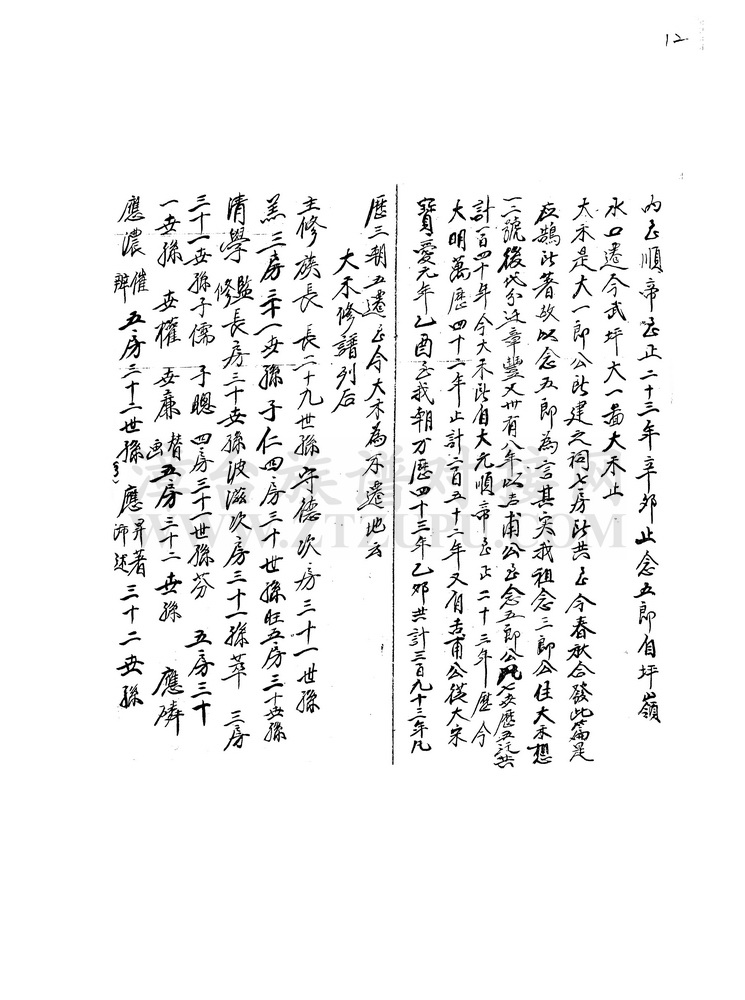 12
內至順帝至正二十三年辛卯止念五郎自坪嶺
水口遷今武坪大一畨大禾止
大禾是大一郎公所建之祠七房所共至今春秋合發此篇是
應鵠所著故以念五郎為言其实我祖念三郎公住大禾想
一二號後代分迁章豐又卅有八年以吉甫公至念五郎公凡七世歷五記共
計一百四十年今大禾所自大元順帝至正二十三年歷今
大明萬歷四十二年止計二百五十二年又自吉甫公從大宋
寶愛元年乙酉至我朝万歷四十三年乙卯共計三百九十三年凡
歷三朝五遷至今大禾為不遷地云
大禾修譜列后
主修族長 長二十九世孫 守德 次房三十一世孫
羔 三房三十一世孫 子仁 四房三十世孫 旺 五房三十世孫
清學 監修 長房三十世孫 波滋 次房三十一孫 萃 三房
三十一世孫 子儒 子聰 四房三十一世孫 芬 五房三十
一世孫 世權 世廉 替画 五房三十二世孫 應隣
應濃 催辦 五房三十二世孫 應昇著 三十二世孫
WWW.ZTZUPU.COM